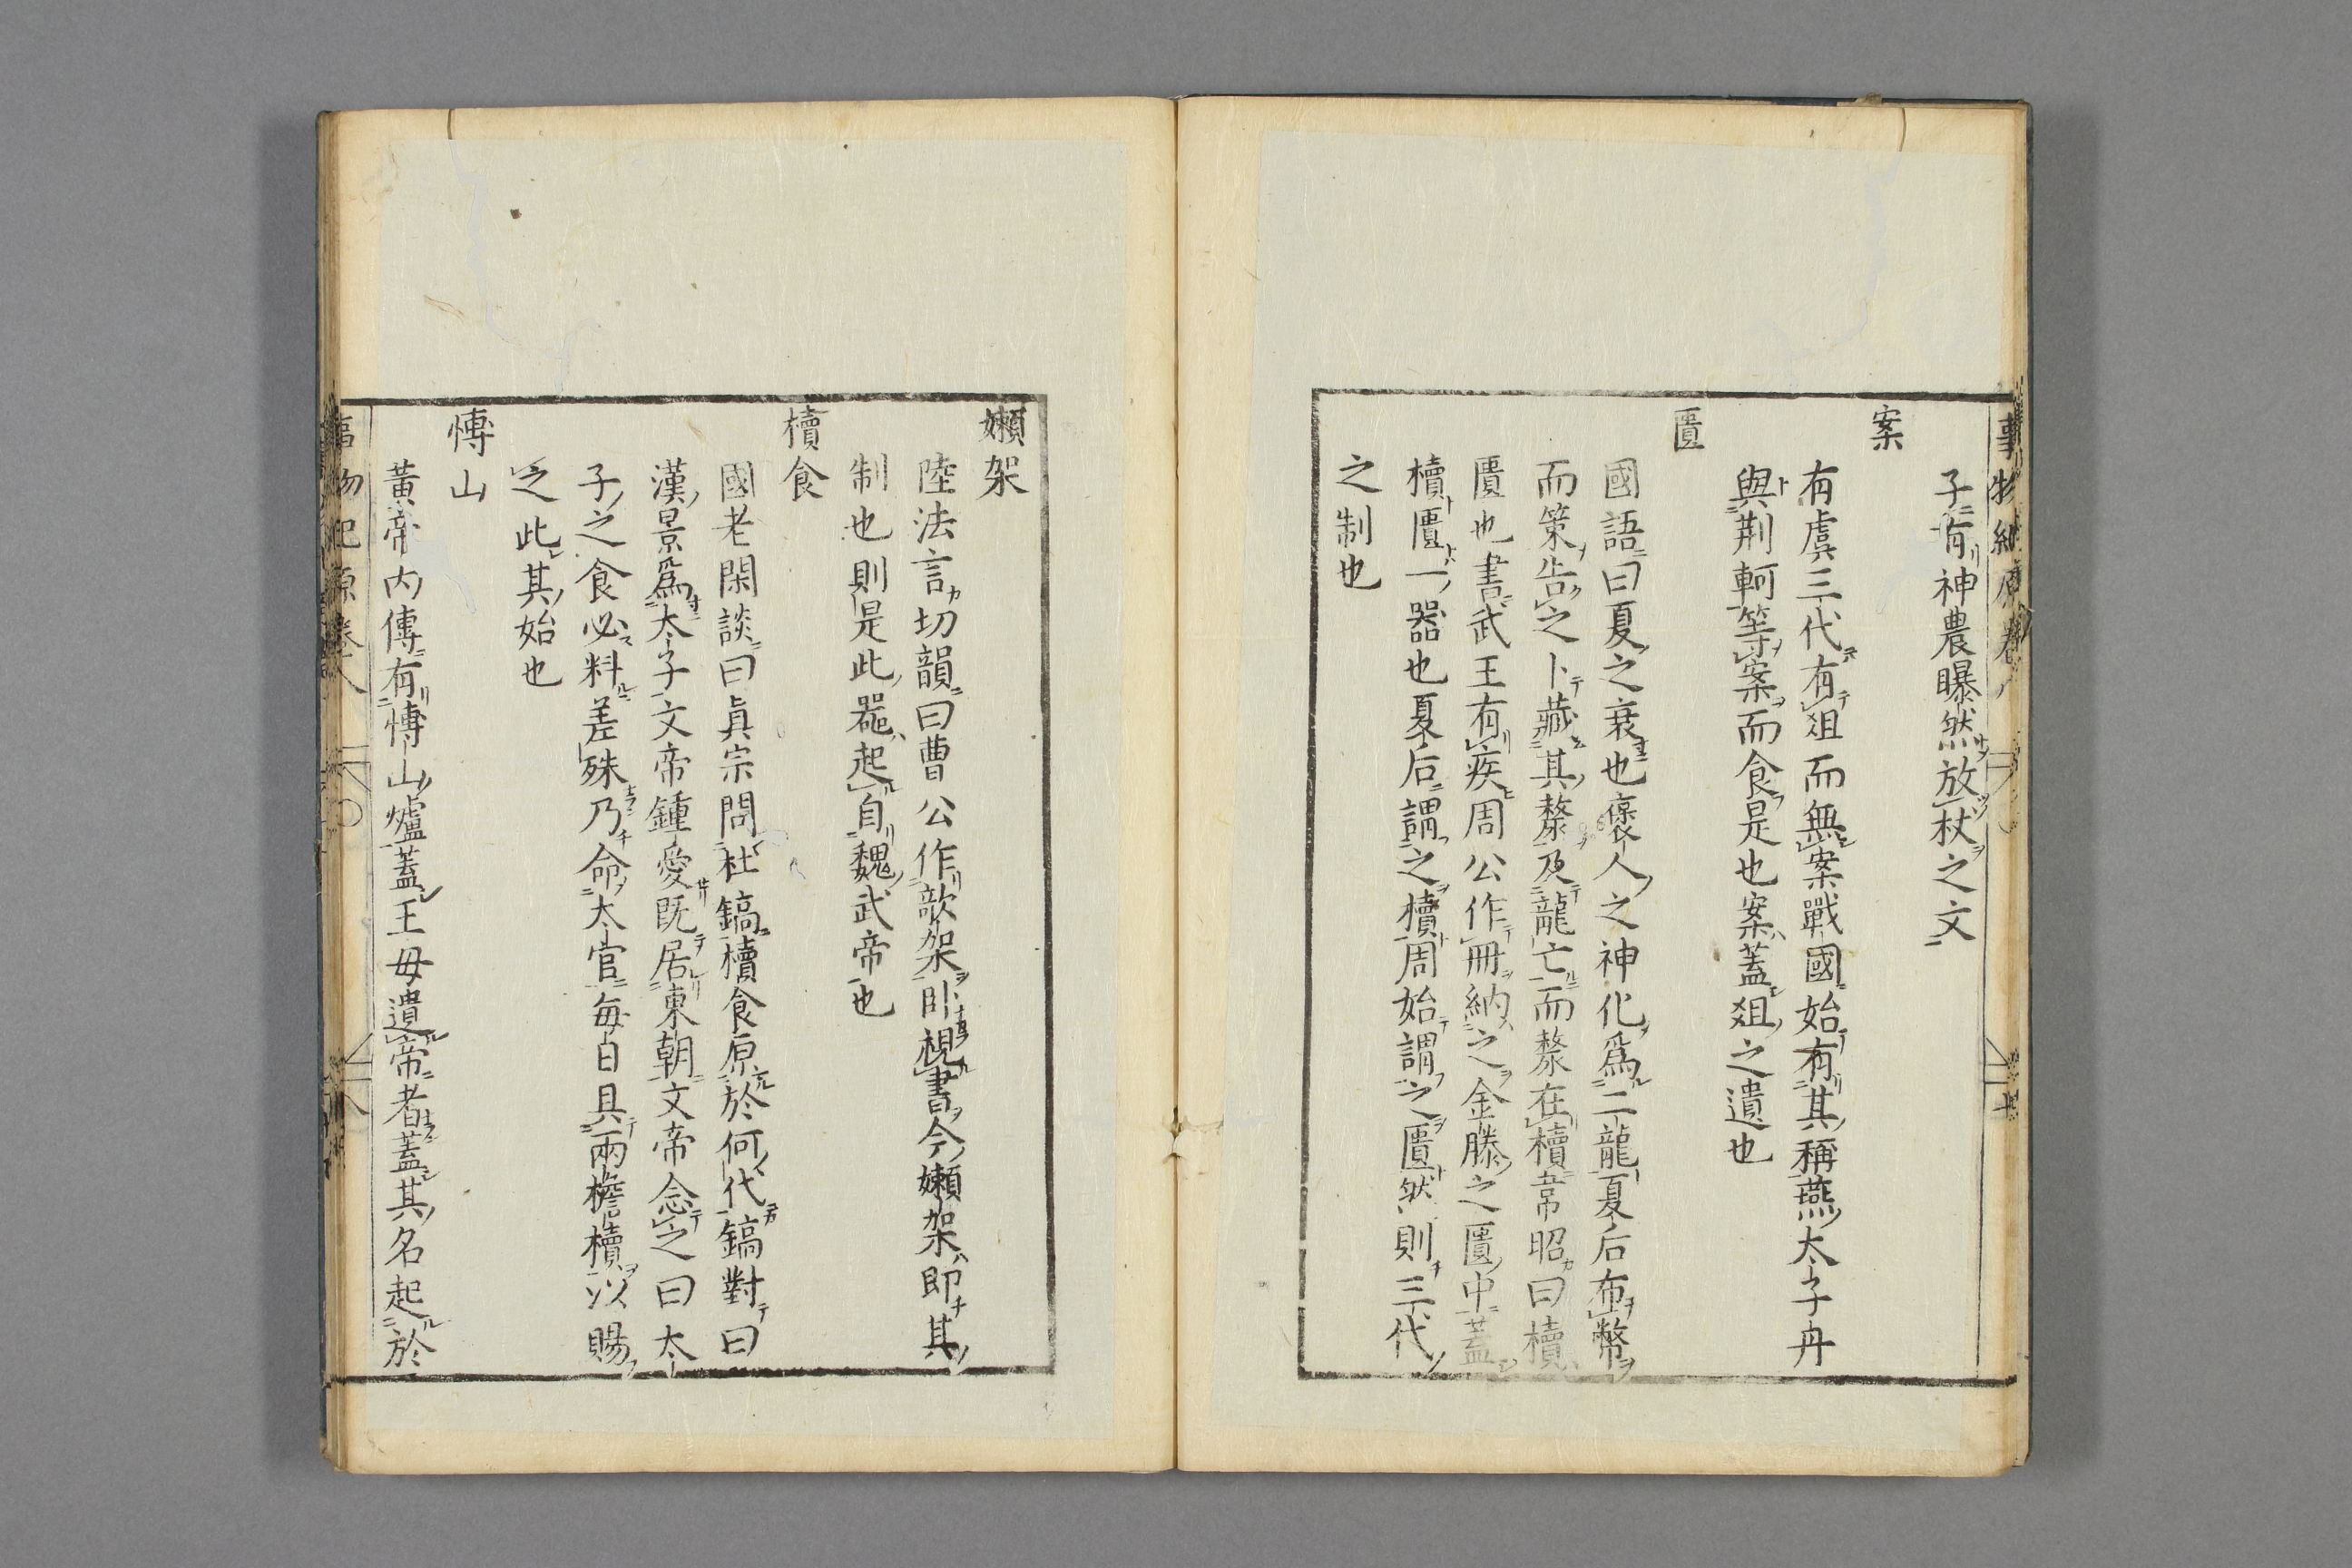 子有神農曝然放杖之文
案
有虞三代有俎而無案戰國始有其稱燕太子丹
與荆軻等案而食是也案蓋俎之遺也
匱
國語曰夏之衰也褒人之神化爲二龍夏后布幣
而策告之卜藏其漦及龍亡而漦在櫝韋昭曰櫝
匱也書武王有疾周公作冊納之金滕之匱中蓋
櫝匱一器也夏后謂之櫝周始謂之匱然則三代
之制也
嬾架
陸法言切韻曰曹公作欹架臥視書今嬾架即其
制也則是此器起自魏武帝也
櫝食
國老閑談曰眞宗問杜鎬櫝食原於何代鎬對曰
漢景爲太子文帝鍾愛既居東朝文帝念之曰太
子之食必料差殊乃命太官每日具兩檐櫝以賜
之此其始也
博山
黃帝内傳有博山爐蓋王母遺帝者蓋其名起於